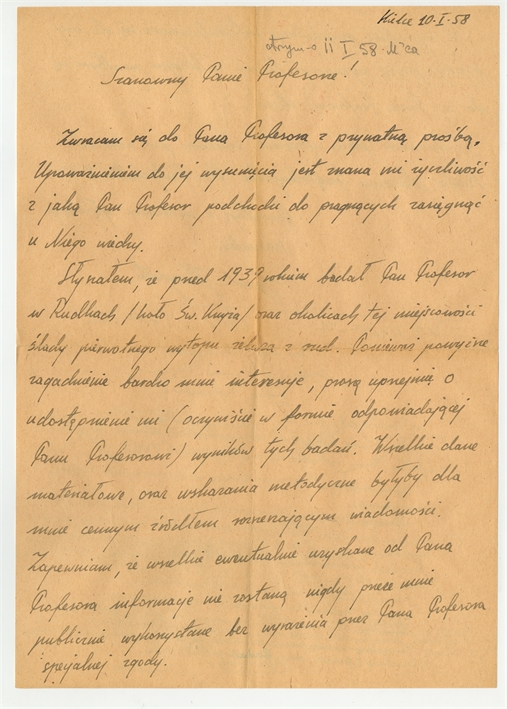 Kielce 10-I-58
otrzym-o 11 I 58 M-ca
Szanowny Panie Profesorze!
Zwracam się do Pana Profesora z prywatną prośbą.
Upoważnieniem do jej wysunięcia jest znana mi życzliwość
z jaką Pan Profesor podchodzi do pragnących zasięgnąć
u Niego wiedzy.
Słyszałem, że przed 1939 rokiem badał Pan Profesor
w Rudkach /koło Św. Krzyża/ oraz okolicach tej miejscowości
ślady pierwotnego wytopu żelaza z rud. Ponieważ powyższe
zagadnienie bardzo mnie interesuje, proszę uprzejmie o
udostępnienie mi (oczywiście w formie odpowiadającej
Panu Profesorowi) wyników tych badań. Wszelkie dane
materiałowe, oraz wskazania metodyczne byłyby dla
mnie cennym źródłem rozszerzającym wiadomości.
Zapewniam, że wszelkie ewentualnie uzyskane od Pana
Profesora informacje nie zostaną nigdy przeze mnie
publicznie wykorzystane bez wyrażenia przez Pana Profesora
specjalnej zgody.